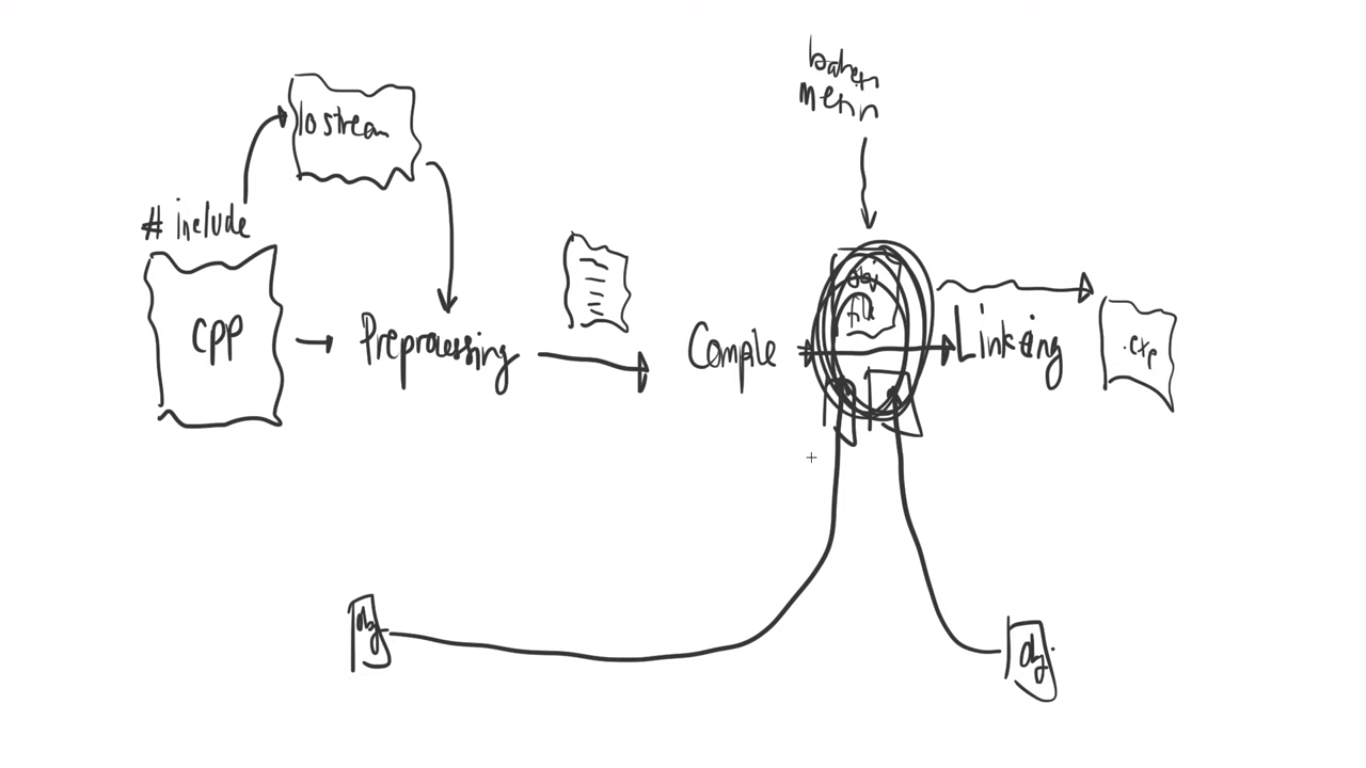 iostream
# include
cpp
Preprocessing
Comple
obj
file
Linking
obj
obj